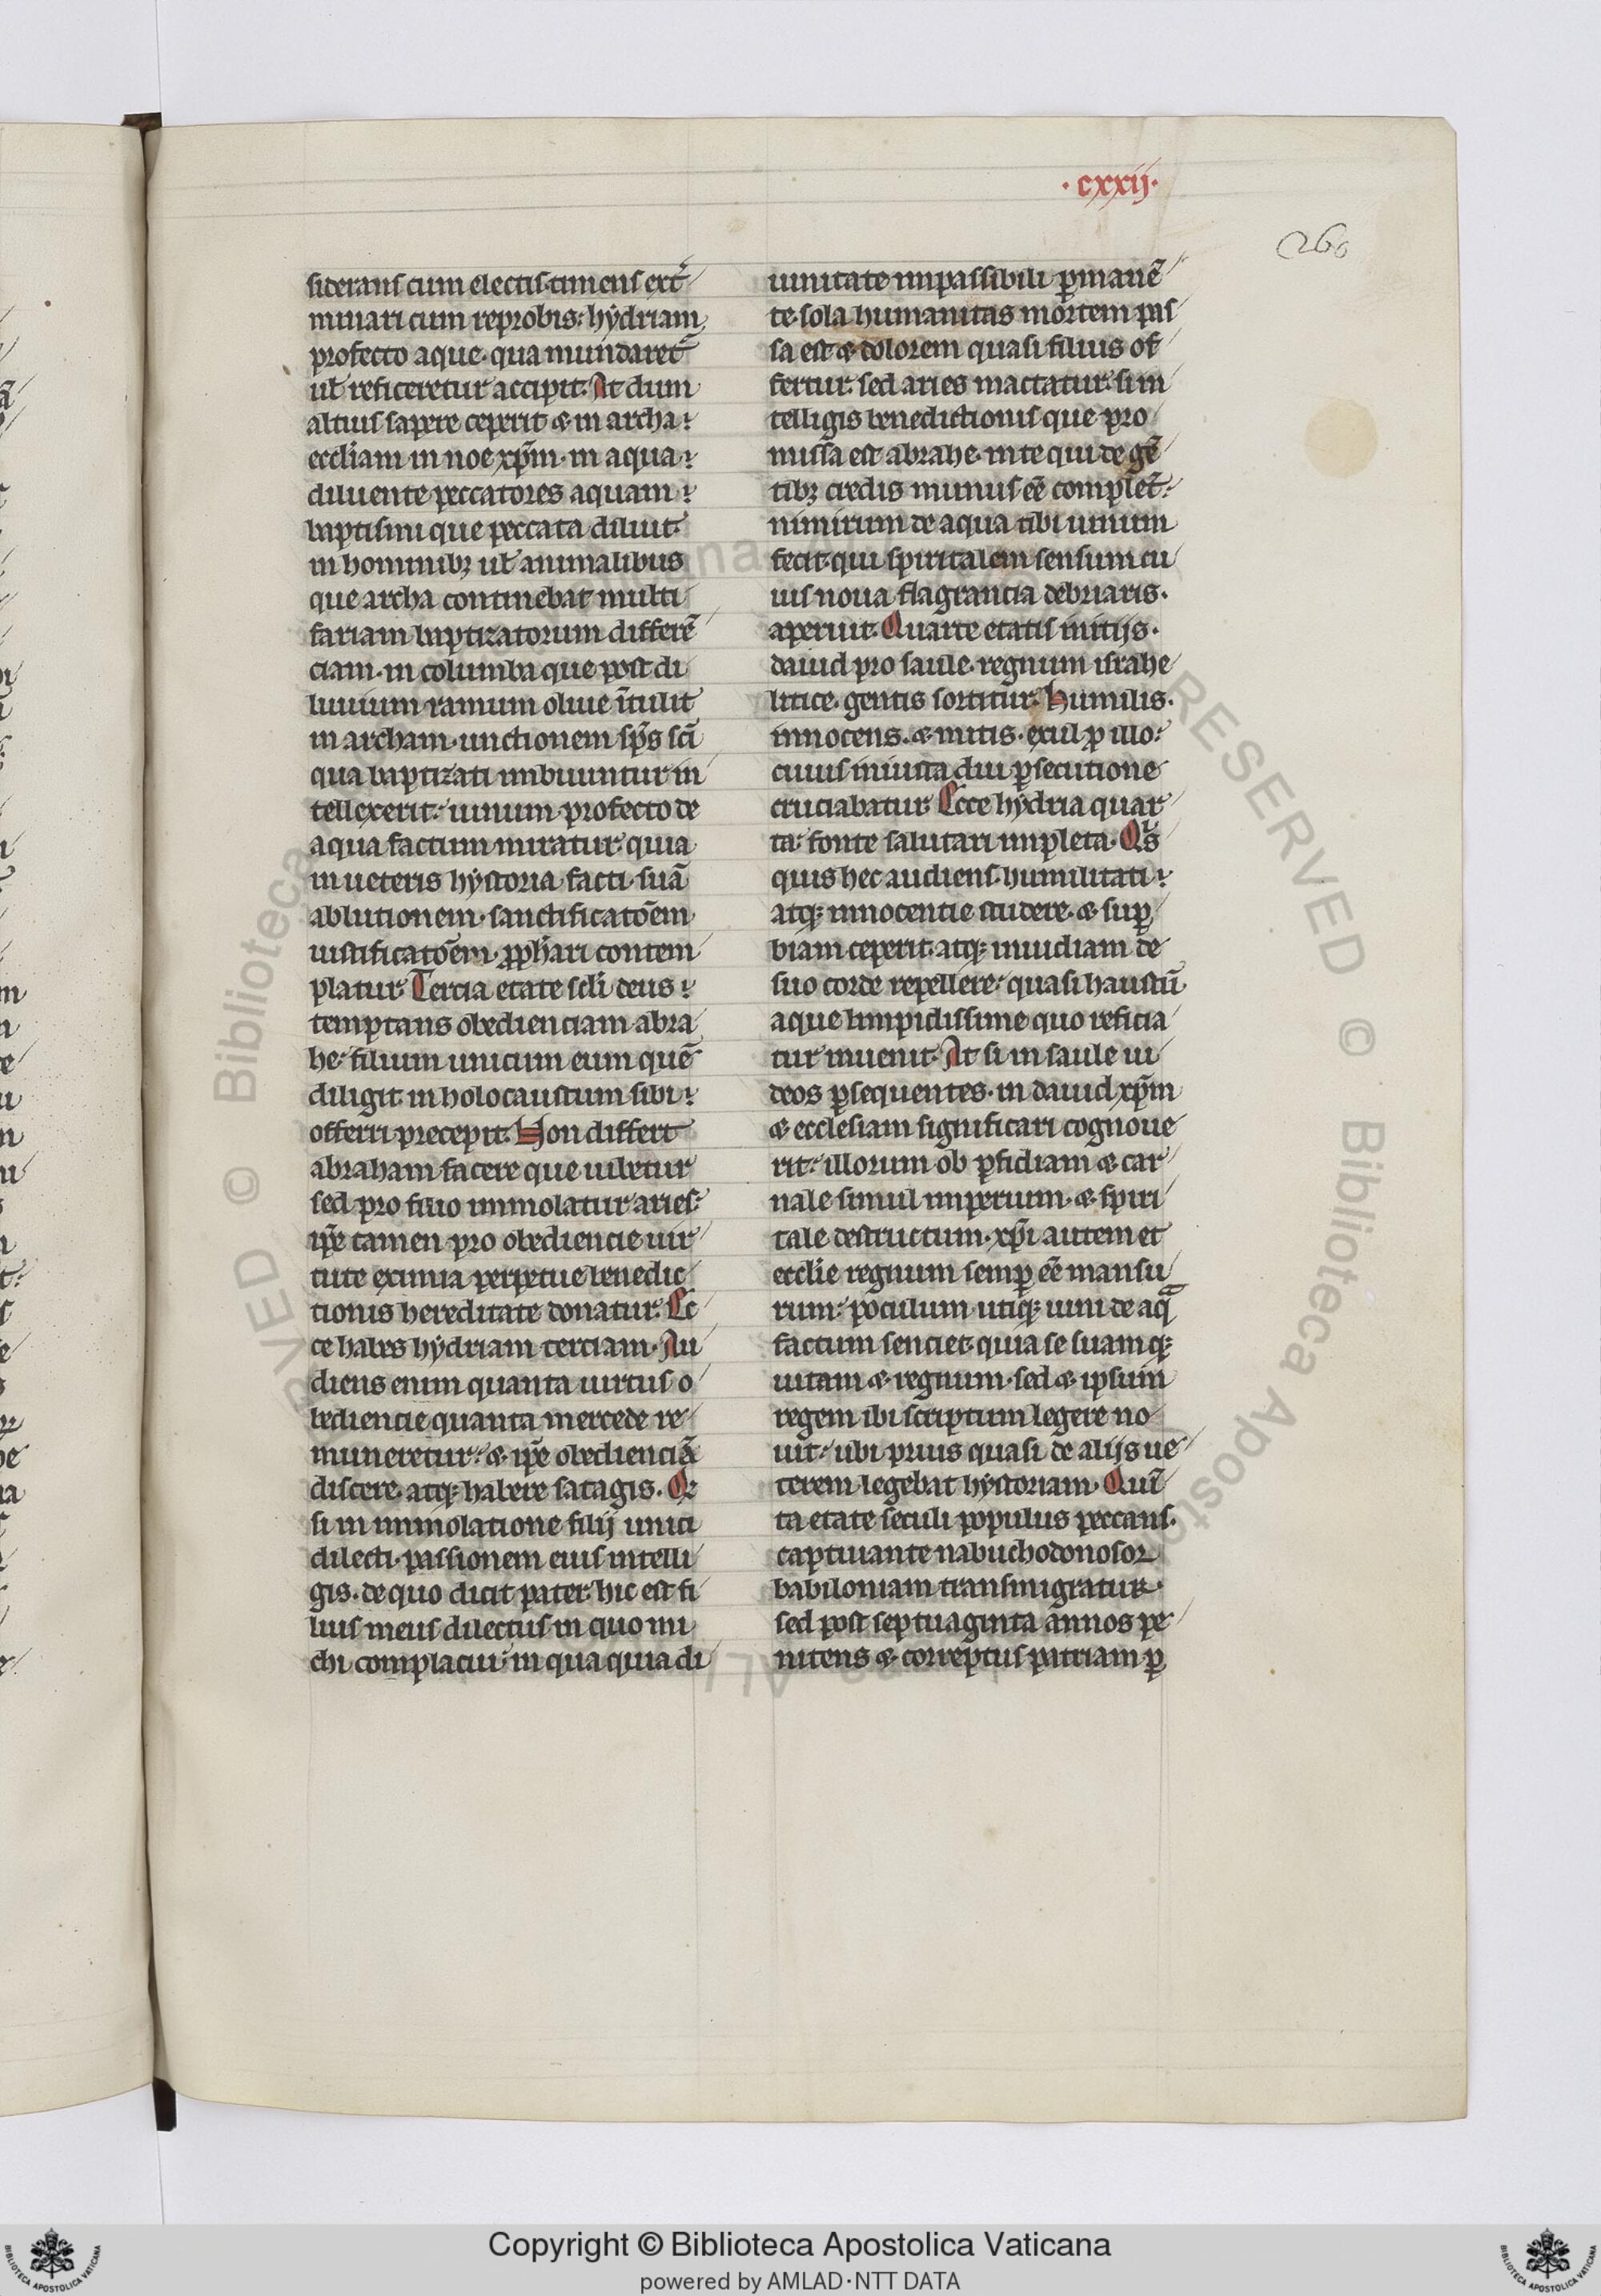 · cxxij ·
siderans cum electis· timens ext̾
minari cum reprobis: hẏdriam
profecto aque· qua mundaret᷑
ul̄ reficeretur accipit. At dum
altius sapere ceperit & in archa:
eccl̄iam in noe xp̄m· in aqua:
diluente peccatores aquam:
baptismi que peccata diluit·
in hominibꝫ ul̄ animalibus
que archa continebat multi
fariam baptizatorum differē
ciam· in columba que post di
luuium ramum oliue ītulit
in archam· unctionem sp̄s sc̄i
qua baptizati imbuuntur in
tellexerit: uinum profecto de
aqua factum miratur quia
in ueteris hẏstoria facti· suā
ablutionem· sanctificatōem
iustificatōem· ꝓph̄ari contem
platur. Tercia etate sc̄li deus:
temptans obedienciam abra
he: filium unicum eum quē
diligit in holocaustum sibi:
offerri precepit. Non differt
abraham facere que iubetur
sed pro filio immolatur aries:
ip̄e tamen pro obediencie uir
tute eximia perpetue benedic
tionis hereditate donatur. Ec
ce habes hẏdriam terciam. Au
diens enim quanta uirtus o
bediencie quanta mercede re
muneretur: & ip̄e obedienciā
discere· atqꝫ habere satagis. Qꝫ
si in immolatione filij unici
dilecti· passionem eius intelli
gis· de quo dicit pater hic est fi
lius meus dilectus in quo mi
chi complacui: in qua quia di
uinitate impassibili ꝑmanē
te· sola humanitas mortem pas
sa est & dolorem quasi filius of
fertur· sed aries mactatur: si in
telligis benedictionis que pro
missa est abrahe· in te qui de gē
tibꝫ credis munus eē complet̄:
nimirum de aqua tibi uinum
fecit· qui spiritalem sensum cu
ius noua flagrancia debriaris·
aperuit. Quarte etatis initijs·
dauid pro saule· regnum israhe
litice· gentis sortitur. Humilis·
innocens· & mitis· exul ꝓ illo:
cuius iniusta diu ꝑsecutione
cruciabatur. Ecce hẏdria quar
ta: fonte salutari impleta. Qͥs
quis hec audiens· humilitati:
atqꝫ innocentie studere· & suꝑ
biam ceperit· atqꝫ inuidiam de
suo corde repellere: quasi haustū
aque limpidissime quo reficia
tur inuenit. At si in saule iu
deos ꝑsequentes· in dauid xp̄m
& ecclesiam significari cognoue
rit: illorum ob ꝑfidiam & car
nale simul imperium· & spiri
tale destructum· xp̄i autem et
eccl̄ie regnum semꝑ eē mansu
rum: poculum utiqꝫ uini de aqᵃ
factum senciet· quia se suamqꝫ
uitam & regnum· sed & ipsum
regem ibi scriptum legere no
uit: ubi prius quasi de alijs ue
terem legebat hẏstoriam. Quī
ta etate seculi populus peccans·
captiuante nabuchodonosor
babiloniam transmigratur·
sed post septuaginta annos pe
nitens & correptus patriam ꝑ
Copyright © Biblioteca Apostolica Vaticana
powered by AMLAD·NTT DATA